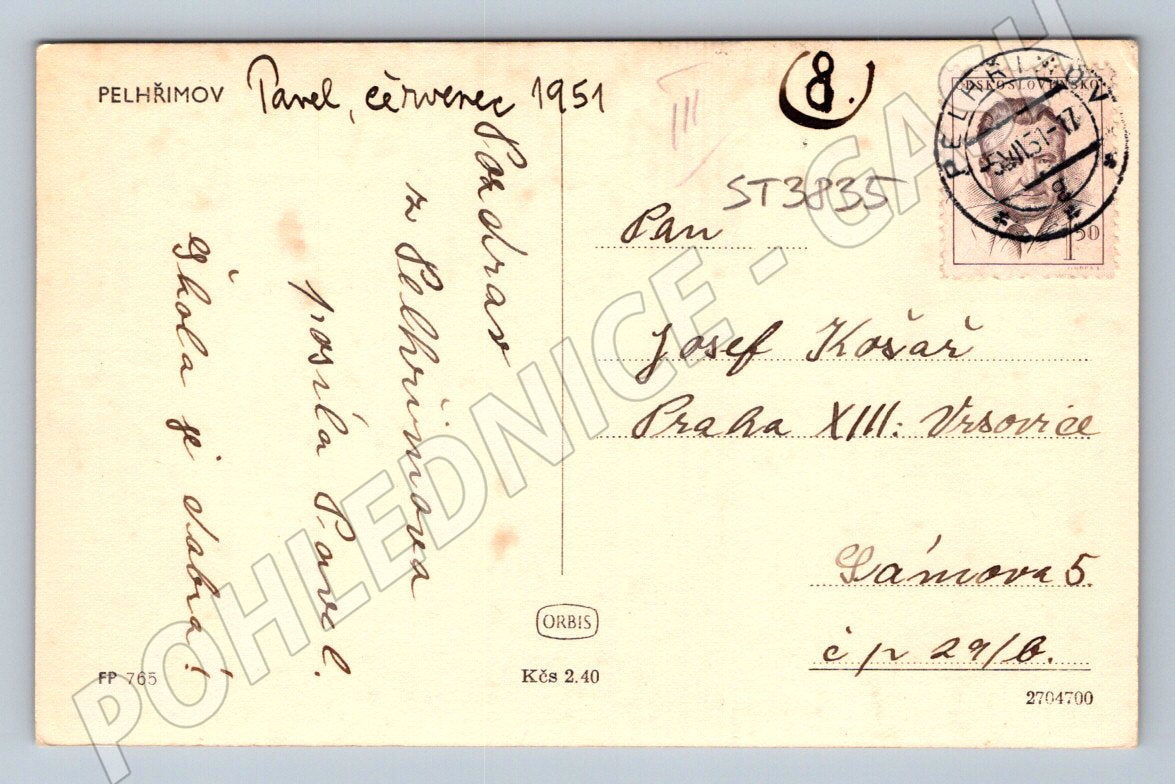 PELHŘIMOV
Pavel, červenec 1951
Pozdrav
z Pelhřimova
posílá Pavel.
Škola je dobrá!
FP 765
ORBIS
Kčs 2.40
III
8.
ST3835
PELHŘIMOV
ČESKOSLOVENSKO
1 50
Pan
Josef Košař
Praha XIII. Vrsovice
Sámova 5.
č p 29/6.
2704700
POHLEDNICE - GASH